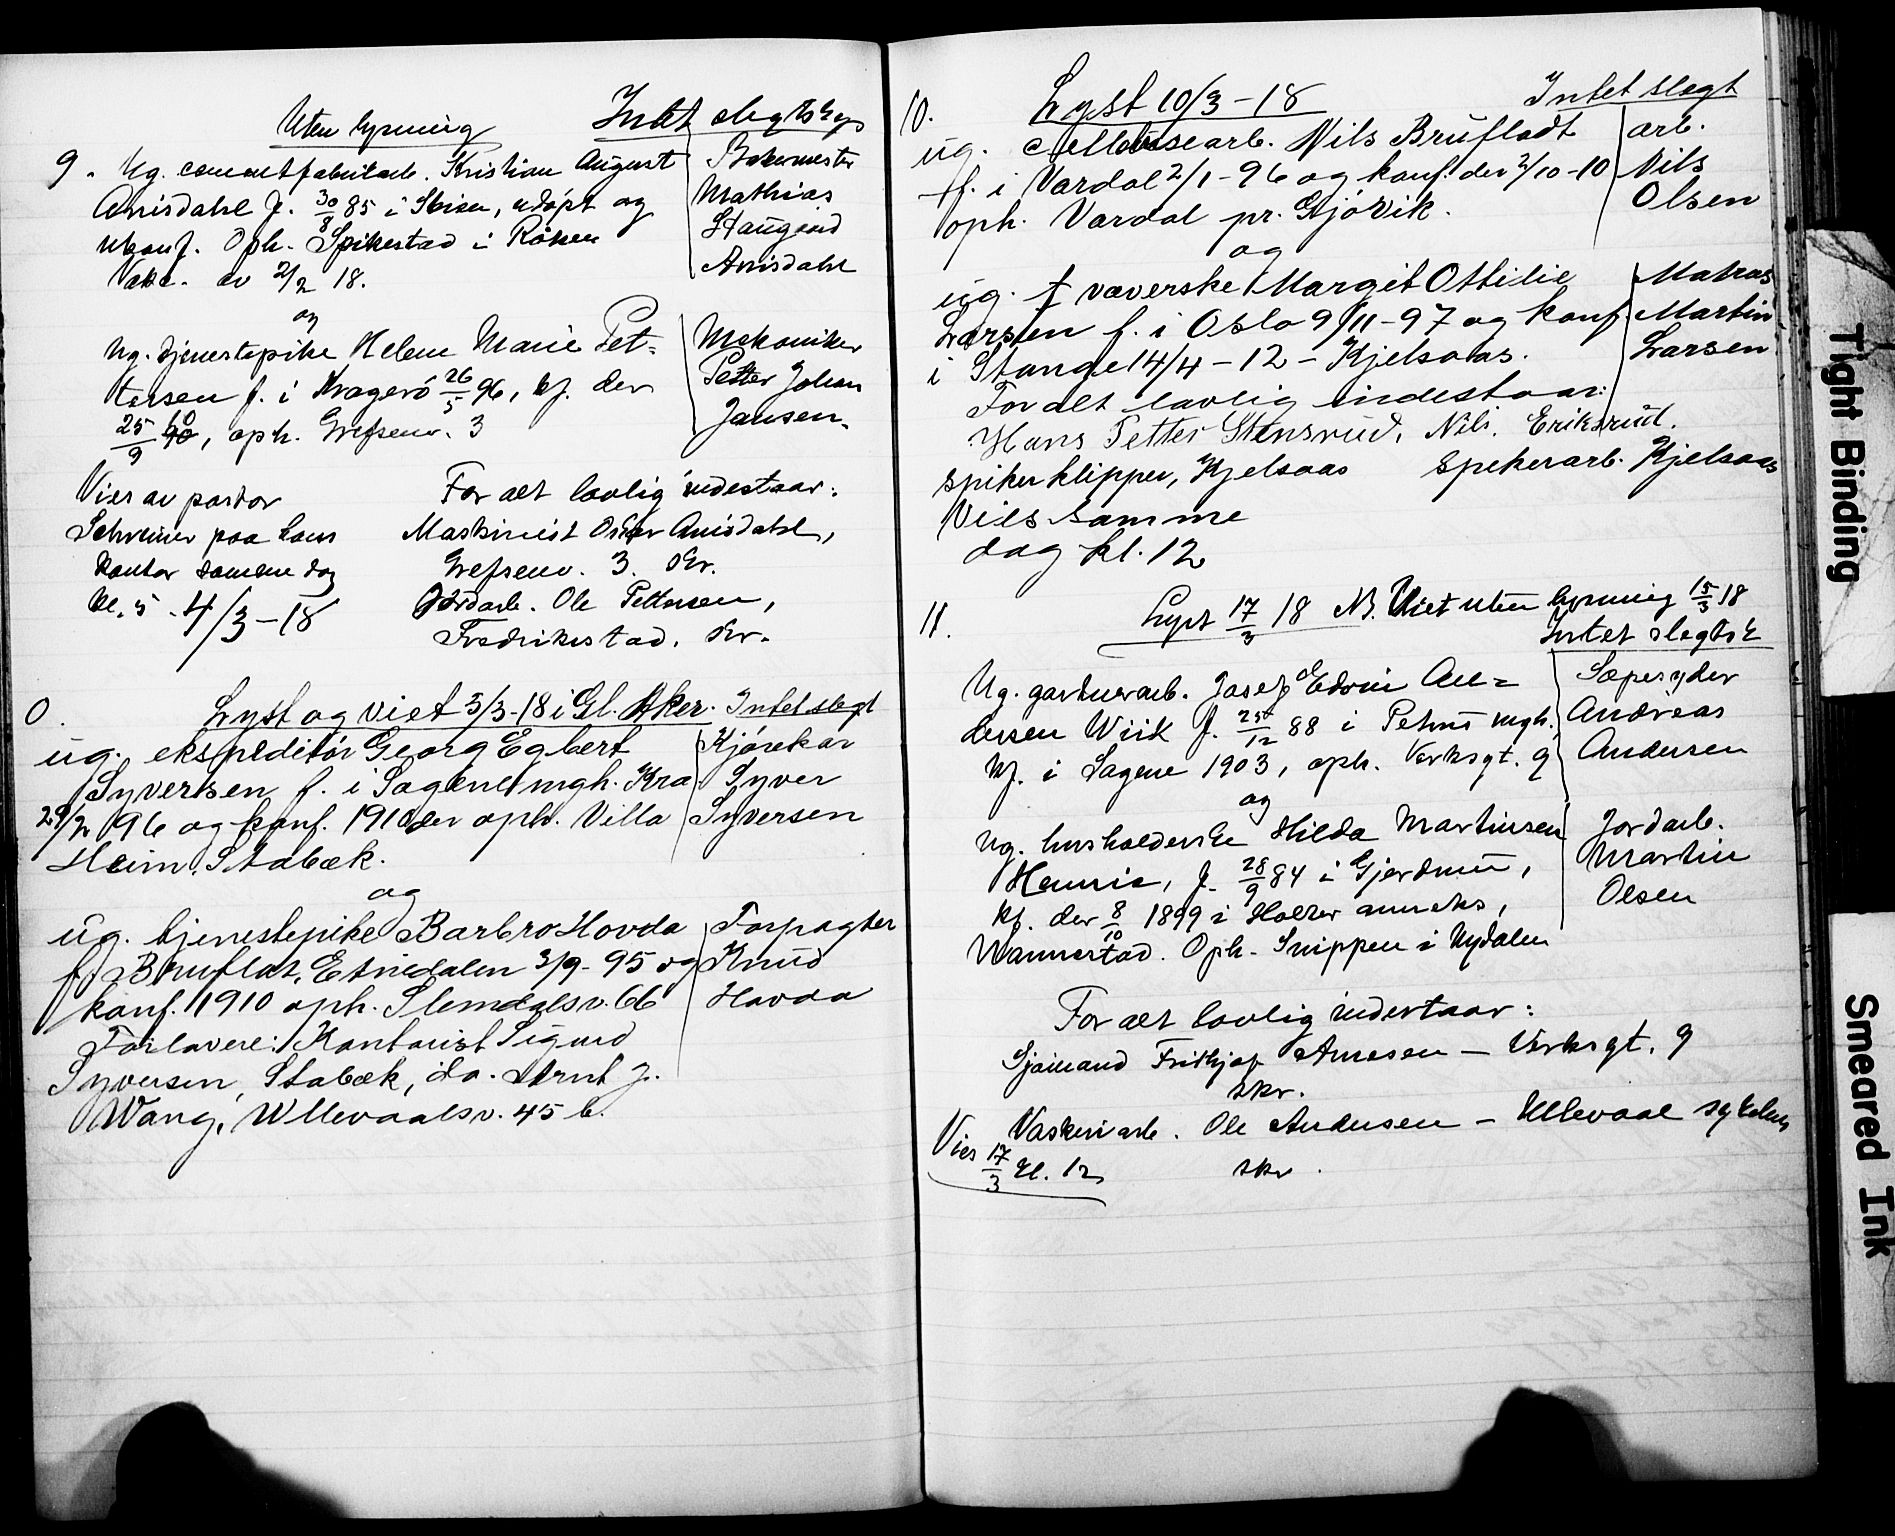 Uten lysning Intet slegtskap
9. Ug. cementfabrikarb. Kristian August Bakermester
Anisdahl f. 30/8 85 i Skien, udøpt og Mathias
ukonf. Oph. Spikestad i Röken
Anisdahl
Vake. av 2/2 18.
og
Ug. tjenestepike Helene Marie Pet- Mekaniker
tersen f. i Kragerö 26/5 96, kf. der Petter Johan
25/9 10, oph. Grefsenv. 3 Jansen.
Viet av pastor For alt lovlig indestaar:
Schreiner paa hans Maskinist Oskar Anisdahl,
kontor samme dag Grefsenv. 3. skr.
kl. 5. 4/3-18 Jordarb. Ole Pettersen,
Fredrikstad. skr.
0. Lyst og viet 3/3-18 i Gl. Aker. Intet slegt
ug. ekspeditör Georg Egbert Kjörekar
Syversen f. i Sagene mgh. Kra Syver
29/2 96 og konf. 1910 der oph. Villa Syversen
Heim, Stabæk.
og
ug. tjenestepike Barbro Hovda Forpagter
f. i Bruflat, Etnedalen 3/9-95 og Knud
konf. 1910 oph. Slemdalsv. 66 Hovda
Forlovere: Kontorist Sigurd
Syversen, Stabæk, do. Arnt J.
Wang, Ullevaalsv. 45 b.
10. Lyst 10/3-18 Intet slegt
ug. Nils Brufladt arb.
f. i Vardal 2/1-96 og konf. der 2/10-10 Nils
oph. Vardal pr. Gjövik. Olsen
og
ug. f væverske Margit Ottilie Matros
Larsen f. i Oslo 9/11-97 og konf. Martin
i Stange 14/4-12 - Kjelsaas. Larsen
For alt lovlig indestaar:
Hans Petter Stensrud, Nils Eriksrud.
spikerklipper, Kjelsaas spikerarb. Kjelsaas
Viet samme
dag kl. 12
11. Lyst 17/3 18 NB. Viet uten lysning 15/3 18
Intet slegtsk
Ug. gartnerarb. Josef Edvin An- Sæpesyder
dersen Wiik f. 25/12 88 i Petrus mgh. Andreas
kf. i Sagene 1903, oph. Verksgt. 9 Andersen
og
Ug. husholderske Hilda Martinsen Jordarb.
Hennie, f. 28/9 84 i Gjerdrum, Martin
kf. der 8/10 1899 i Holter anneks, Olsen
Nannestad. Oph. Snippen i Nydalen
For alt lovlig indestaar:
Sjömand Fritjof Arnesen - Verksgt. 9
skr.
Vaskeriarb. Ole Andersen - Ullevaal sykehus
skr.
Viet 17/3 kl. 12
Tight Binding
Smeared Ink